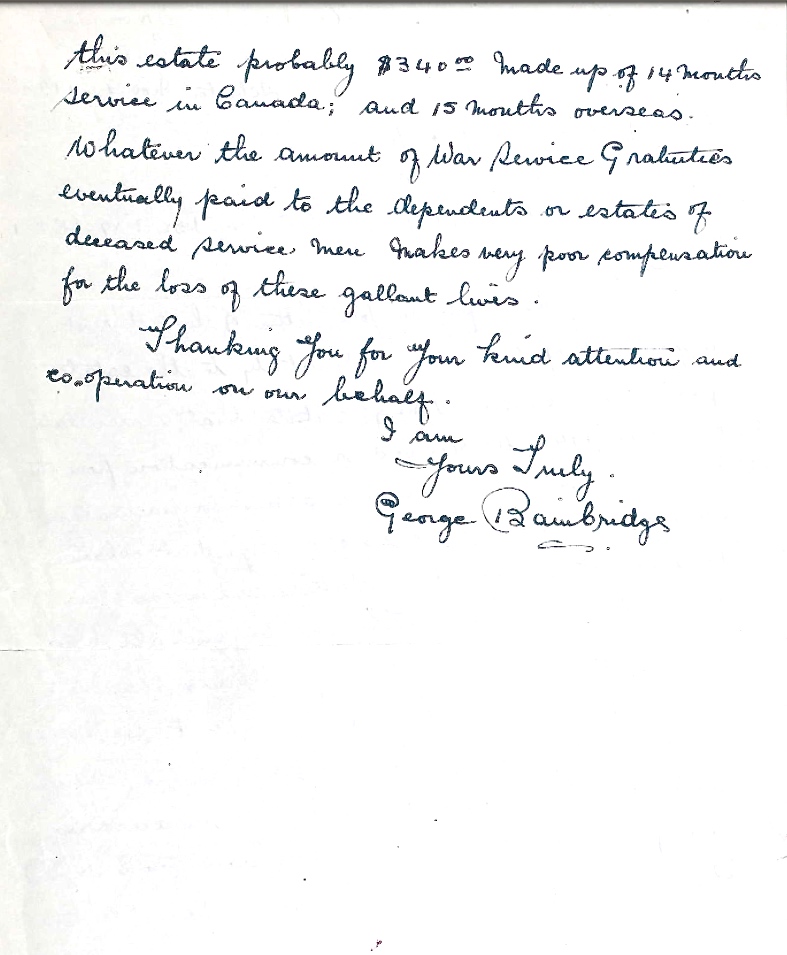 this estate probably $340.00 Made up of 14 Months
service in Canada; and 15 Months overseas.
Whatever the amount of War Service Gratuties
eventually paid to the dependents or estates of
deceased service men Makes very poor compensation
for the loss of these gallant lives.
Thanking You for Your kind attention and
co.operation on our behalf.
I am
Yours Truly.
George Bainbridge